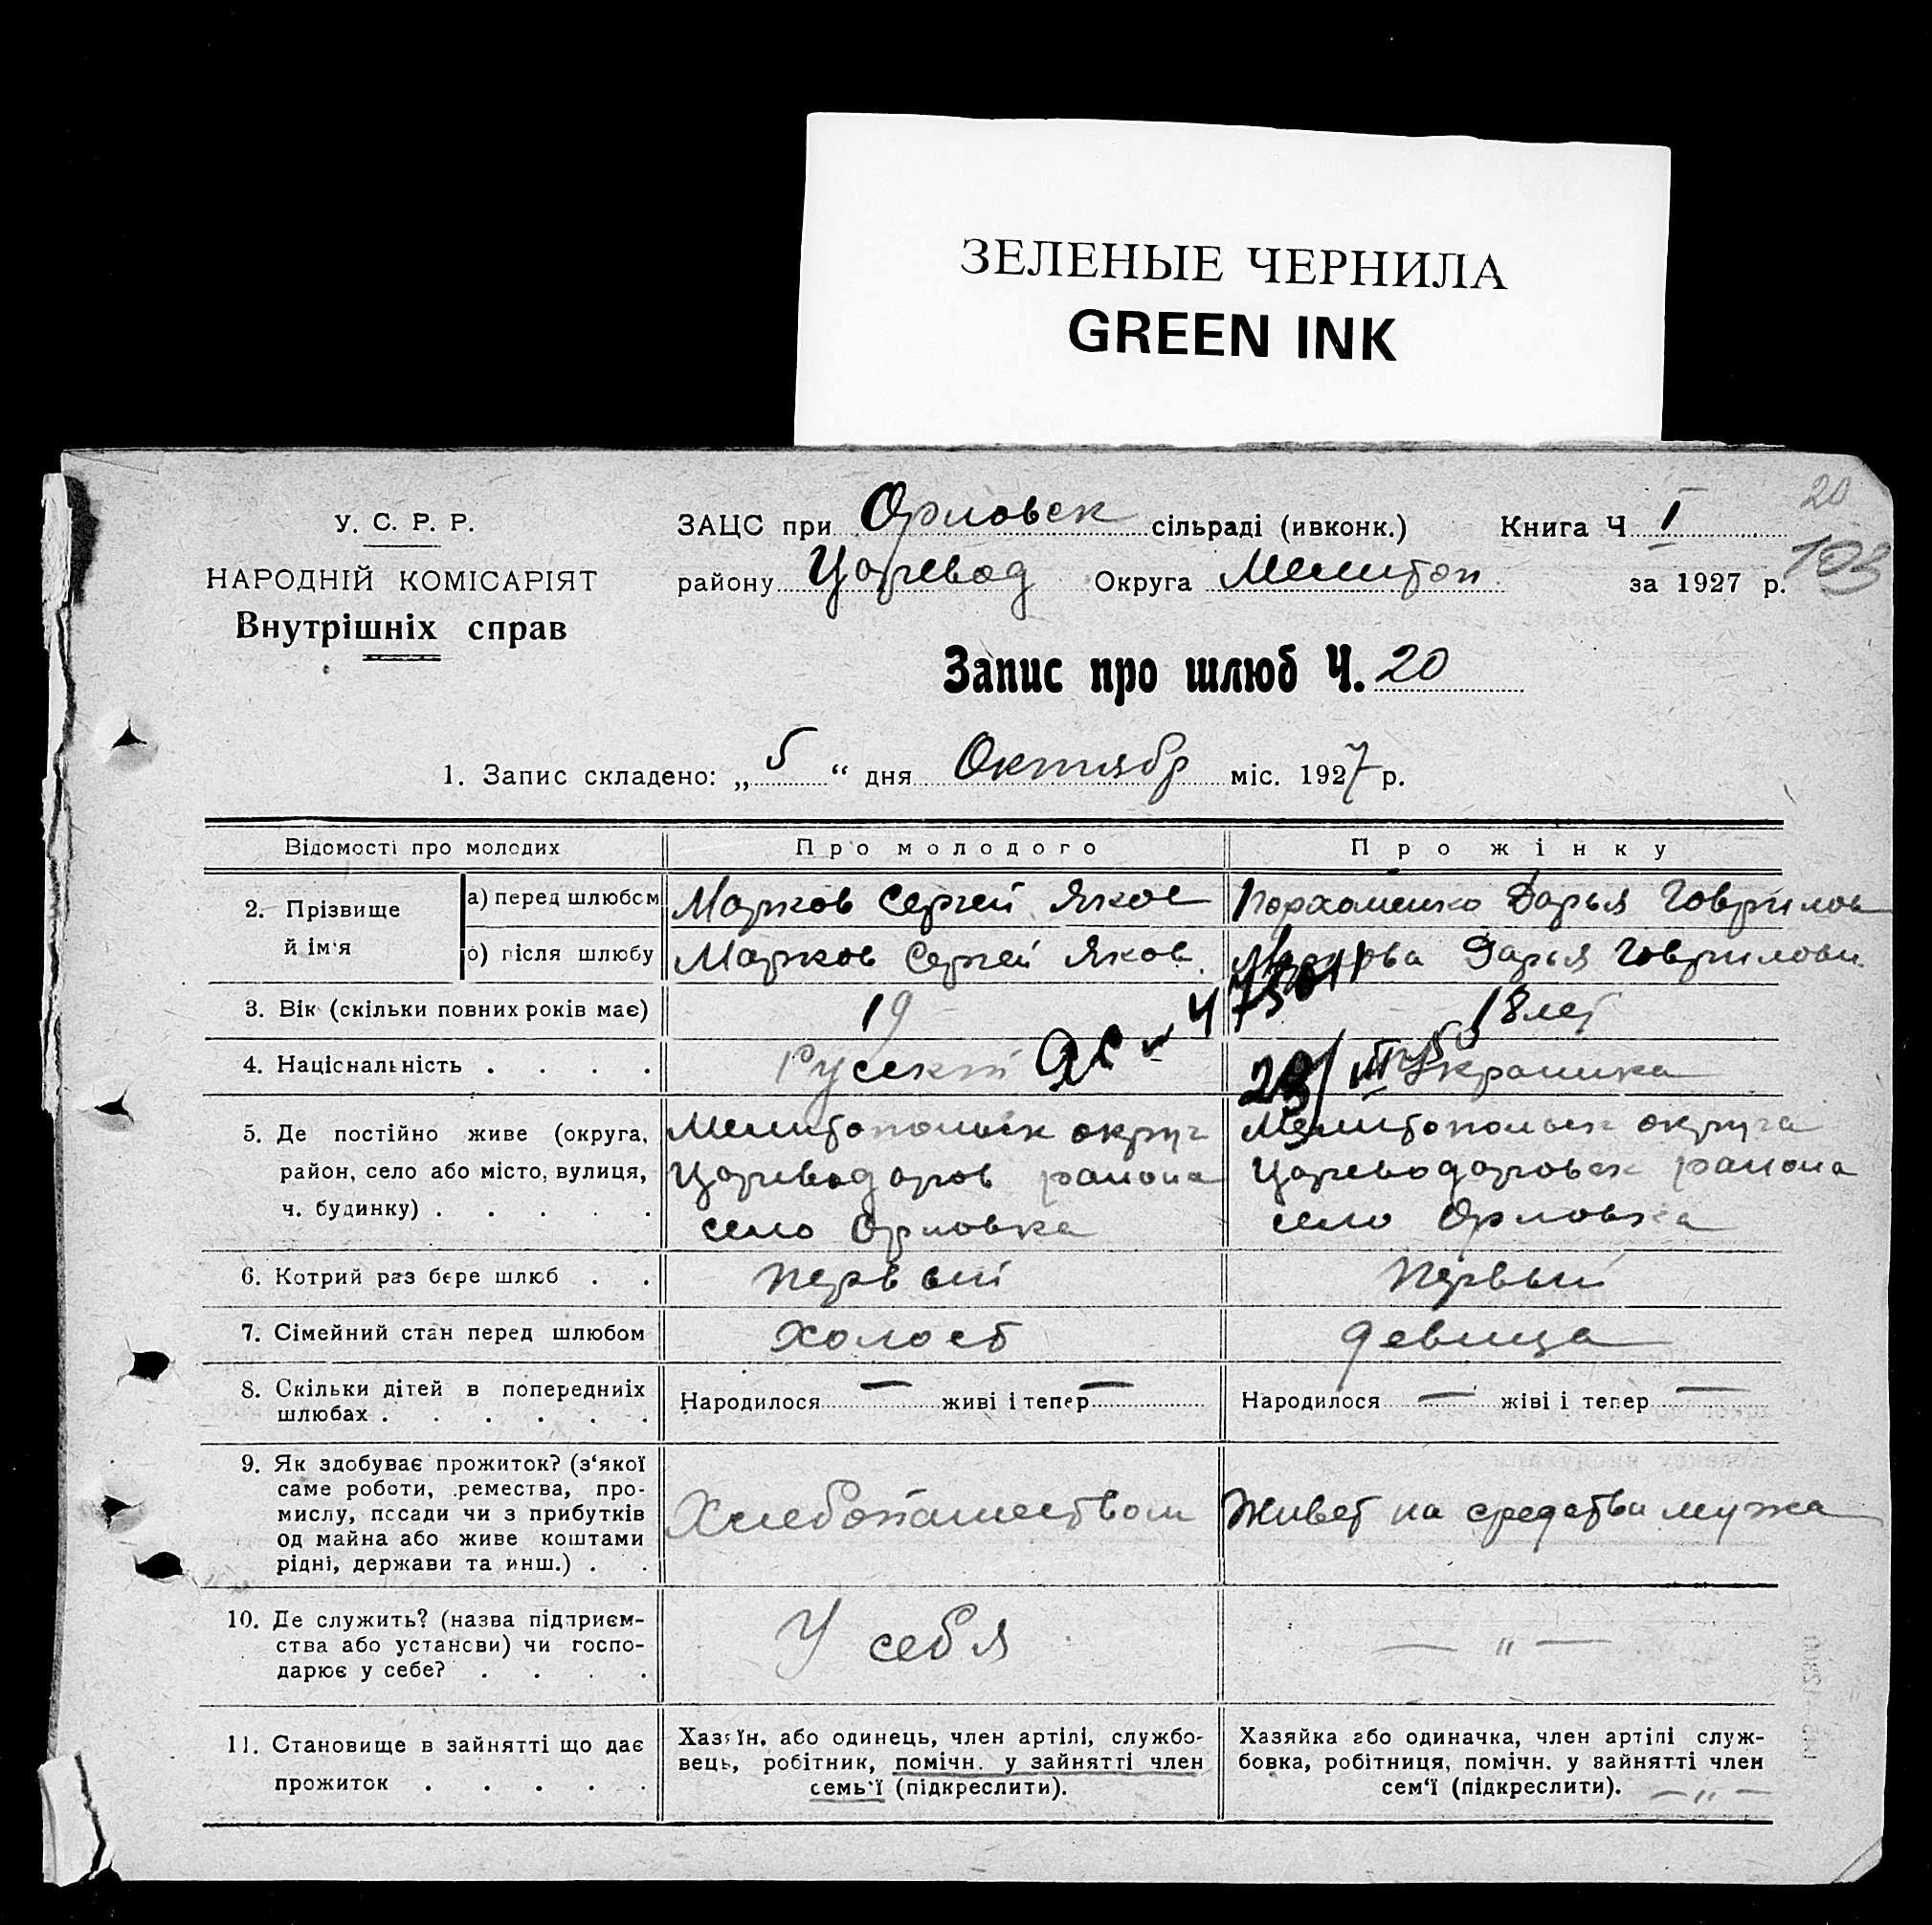 ЗЕЛЕНЫЕ ЧЕРНИЛА
GREEN INK
20
103
У. С. Р. Р.
НАРОДНІЙ КОМІСАРІЯТ
Внутрішніх справ
ЗАЦС при Орловск сільраді (ивконк.) Книга Ч I
району Царевод Округа Мелитоп за 1927 р.
Запис про шлюб Ч. 20
1. Запис складено: „ 5 “ дня Октябр міс. 1927 р.
Відомості про молодих Про молодого Про жінку
2. Прізвище й ім‘я
а) перед шлюбом Марков Сергей Яковл Пархоменко Дарья Гаврилов
б) після шлюбу Марков Сергей Яков. Маркова Дарья Гаврилови.
3. Вік (скільки повних років має) 19 18 лет
4. Націснальність . . . . Русский Украинка
5. Де постійно живе (округа, Мелитопольск округ Мелитопольск округа
район, село або місто, вулиця, Цареводаров района Цареводаровск района
ч. будинку) . . . . . село Орловка село Орловка
6. Котрий раз бере шлюб . . Первый Первый
7. Сімейний стан перед шлюбом Холост девица
8. Скільки дітей в попередниіх Народилося — живі і тепер — Народилося — жіві і тепер —
шлюбах . . . . . .
9. Як здобуває прожиток? (з‘якої
саме роботи, ремества, про-
мислу, посади чи з прибутків Хлебопашеством Живет на средства мужа
од майна або живе коштами
рідні, держави та инш.) . .
10. Де служить? (назва підприєм-
ства або установи) чи госпо- У себя — „ —
дарює у себе? . . . .
11. Становище в зайнятті що дає
прожиток . . . . .
Хазяїн, або одинець, член артілі, службо-
вець, робітник, помічн. у зайнятті член
семь‘ї (підкреслити).
Хазяйка або одиначка, член артілі служ-
бовка, робітниця, помічн. у зайнятті член
сем‘ї (підкреслити). — „ —